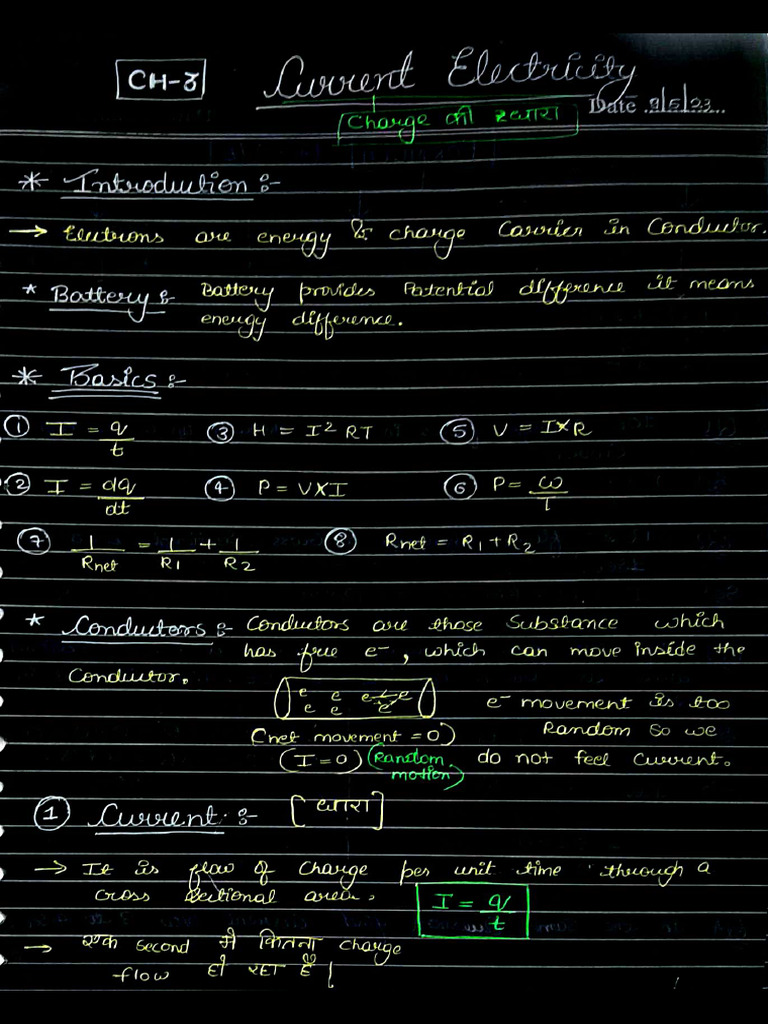 CH-3 Current Electricity
Charge की धारा Date 9/5/23...
* Introduction :-
→ Electrons are energy & charge Carrier in Conductor.
* Battery :- Battery provides Potential difference it means
energy difference.
* Basics :-
① I = q/t ③ H = I² RT ⑤ V = I×R
② I = dq/dt ④ P = V×I ⑥ P = ω/T
⑦ 1/Rnet = 1/R1 + 1/R2 ⑧ Rnet = R1 + R2
* Conductors :- Conductors are those Substance which
has free e⁻, which can move inside the
Conductor.
e e e e
e e e
e⁻ movement is too
(net movement = 0) Random so we
(I = 0) (Random motion) do not feel current.
① Current :- [धारा]
→ It is flow of charge per unit time through a
cross sectional area. I = q/t
→ एक second में कितना charge
flow हो रहा है।